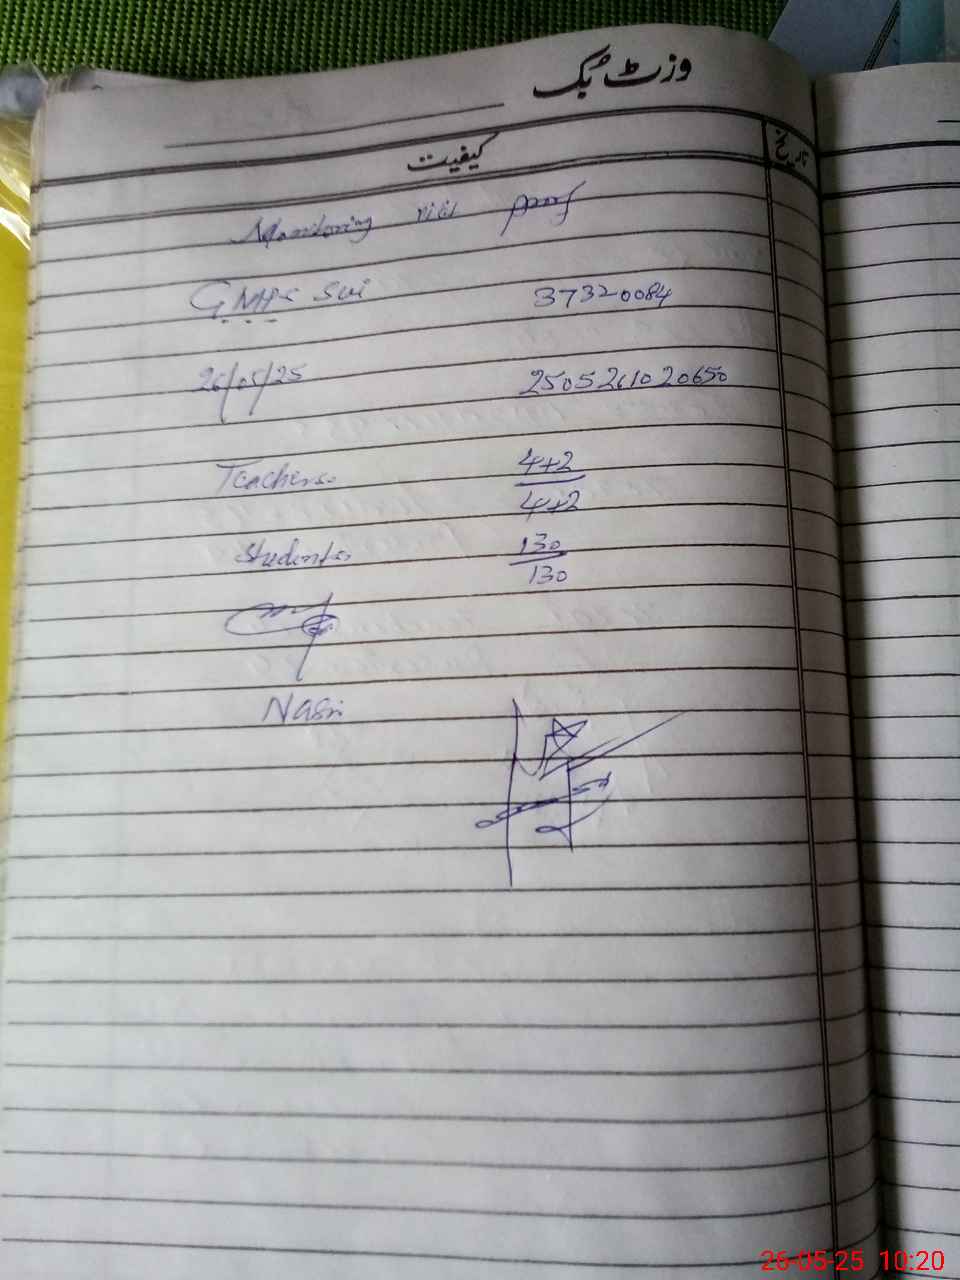 وزٹ بُک
کیفیت تاریخ
Monitoring visit proof
GMPS Sui 37320084
26/05/25 2505261020650
Teachers. 4+2
4+2
Students. 130
130
26-05-25 10:20